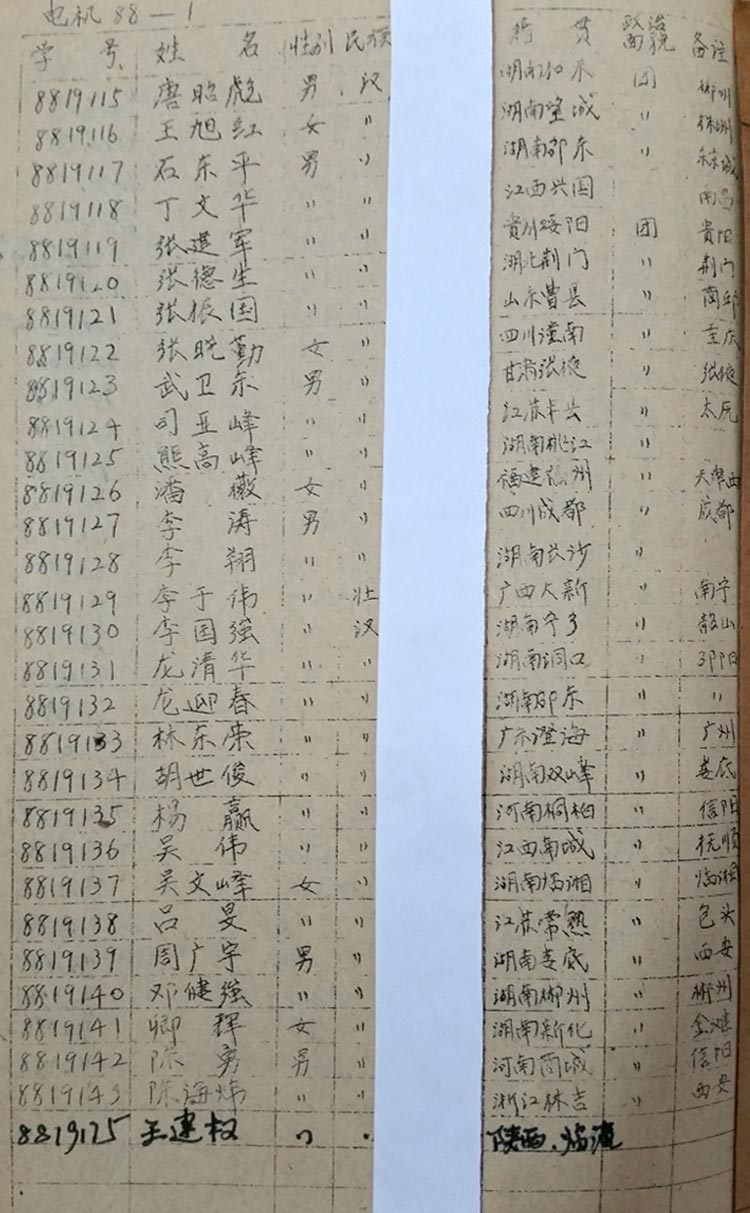 电机88-1
学号 姓名 性别 民族 籍贯 政治面貌 备注
8819115 唐昭彪 男 汉 湖南加禾 团 郴州
8819116 王旭红 女 〃 湖南望城 〃 株洲
8819117 石东平 男 〃 湖南邵东 〃
8819118 丁文华 〃 〃 江西兴国 南昌
8819119 张建军 〃 〃 贵州绥阳 团 贵阳
8819120 张德生 〃 〃 湖北荆门 〃 荆门
8819121 张振国 〃 〃 山东曹县 〃 商邱
8819122 张晓勤 女 〃 四川潼南 〃 重庆
8819123 武卫东 男 〃 甘肃张掖 〃 张掖
8819124 司亚峰 〃 〃 江苏丰县 〃 太原
8819125 熊高峰 〃 〃 湖南桃江 〃
8819126 潘薇 女 〃 福建 州 〃 天津西
8819127 李涛 男 〃 四川成都 〃 成都
8819128 李翔 〃 〃 湖南长沙 〃
8819129 李于伟 〃 壮 广西大新 〃 南宁
8819130 李国强 〃 汉 湖南宁乡 〃 韶山
8819131 龙清华 〃 〃 湖南洞口 〃 邵阳
8819132 龙迎春 〃 〃 湖南邵东 〃 〃
8819133 林东荣 〃 〃 广东澄海 〃 广州
8819134 胡世俊 〃 〃 湖南双峰 〃 娄底
8819135 杨赢 〃 〃 河南桐柏 〃 信阳
8819136 吴伟 〃 〃 江西南城 〃 抚顺
8819137 吴文峰 女 〃 湖南临湘 〃 临湘
8819138 吕旻 〃 〃 江苏常熟 〃 包头
8819139 周广宇 男 〃 湖南娄底 〃 西安
8819140 邓健强 〃 〃 湖南郴州 〃 郴州
8819141 卿辉 女 〃 湖南新化 〃
8819142 陈勇 男 〃 河南商城 〃 信阳
8819143 陈海炜 〃 〃 浙江 〃 西安
8819125 王建权 〃 〃 陕西.临潼